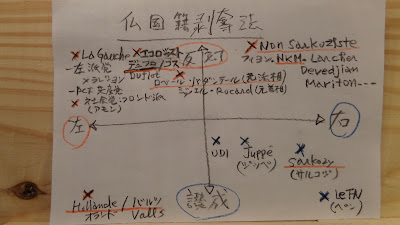 仏国籍剥奪法
La Gauche
一左派党
メランション
PCF 共産党
社会党:フロンドュ派
(アモン)
エコロジスト
デュフロ/コス
Duflot
反対
ロベール・バダンテール(元法相)
ミシェル・Rocard(元首相)
Non Sarkoziste
フィヨン、NKM、Lanchon
Devedjian
Mariton---
左
右
UDI
Juppé
(ジュッペ)
Sarkozy
(サルコジ)
Hollande/バルツ
オランド Valls
賛成
Le FN
(ペン)